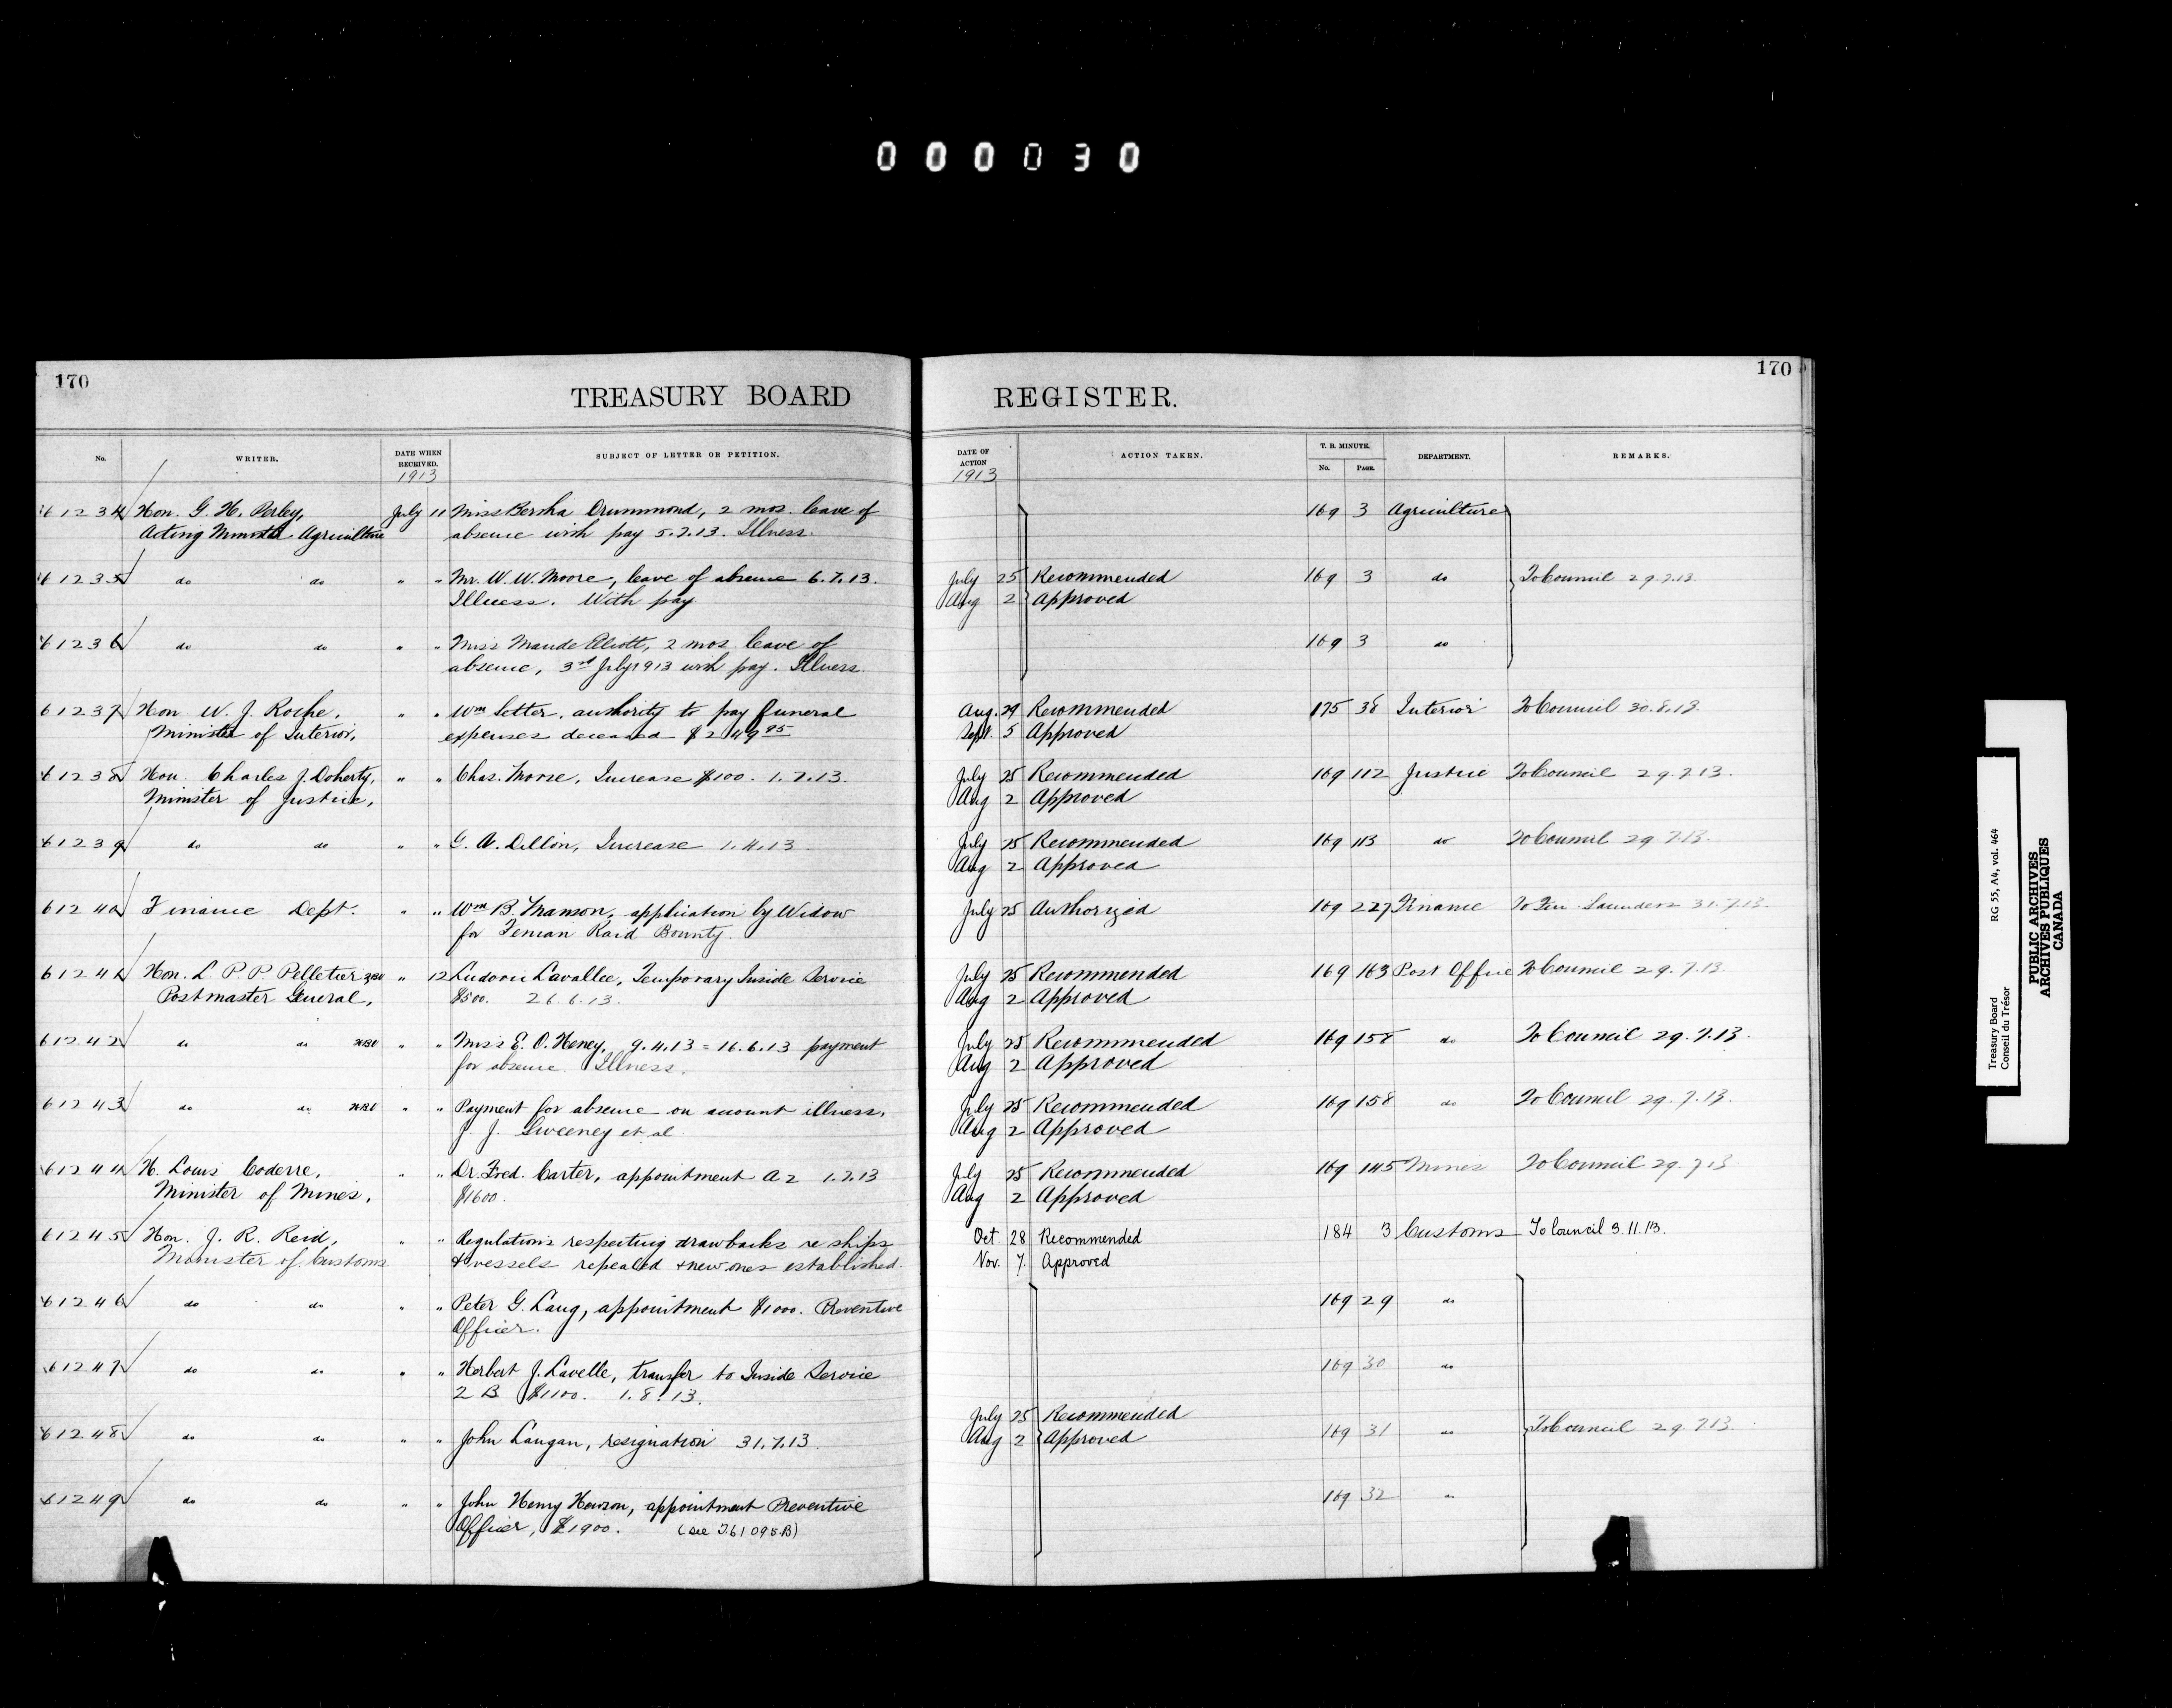 000030
170
TREASURY BOARD REGISTER.
170
No. WRITER. DATE WHEN RECEIVED. SUBJECT OF LETTER OR PETITION. DATE OF ACTION ACTION TAKEN. T. B. MINUTE. No. PAGE. DEPARTMENT. REMARKS.
1913 1913
61234 Hon. G. H. Perley, July 11 Miss Bertha Drummond, 2 mos. leave of 169 3 Agriculture
Acting Minister Agriculture absence with pay 5.7.13. Illness.
61235 do do " " Mr. W. W. Moore, leave of absence 6.7.13. July 25 Recommended 169 3 do To Council 29.7.13.
Illness. With pay Aug 2 Approved
61236 do do " " Miss Maude Eliott, 2 mos. leave of 169 3 do
absence, 3rd July 1913 with pay. Illness.
61237 Hon W. J. Roche, " " Wm Setter, authority to pay funeral Aug. 29 Recommended 175 38 Interior To Council 30.8.13.
Minister of Interior, expenses deceased $249.95 Sept. 5 Approved
61238 Hon. Charles J. Doherty, " " Chas. Morse, Increase $100. 1.7.13. July 25 Recommended 169 112 Justice To Council 29.7.13.
Minister of Justice, Aug 2 Approved
61239 do do " " G. A. Dillon, Increase 1.4.13 July 25 Recommended 169 113 do To Council 29.7.13.
Aug 2 Approved
61240 Finance Dept. " " Wm B. Manson, application by Widow July 25 Authorized 169 227 Finance Saunders 31.7.13.
for Fenian Raid Bounty.
61241 Hon. L. P. P. Pelletier " 12 Ludovic Lavallee, Temporary Inside Service July 25 Recommended 169 163 Post Office To Council 29.7.13.
Postmaster General, $500. 26.6.13. Aug 2 Approved
61242 do do " " Miss E. O. Heney, 9.4.13 = 16.6.13 payment July 25 Recommended 169 158 do To Council 29.7.13.
for absence. Illness. Aug 2 Approved
61243 do do " " Payment for absence on account illness, July 25 Recommended 169 158 do To Council 29.7.13.
J. J. Sweeney et al Aug 2 Approved
61244 H. Louis Coderre, " " Dr. Fred. Carter, appointment A2 1.7.13 July 25 Recommended 169 145 Mines To Council 29.7.13
Minister of Mines, $1600. Aug 2 Approved
61245 Hon. J. R. Reid, " " Regulations respecting drawbacks re ships Oct. 28 Recommended 184 3 Customs To Council 3.11.13.
Minister of Customs & vessels repealed & new ones established. Nov. 7. Approved
61246 do do " " Peter G. Laug, appointment $1000. Preventive 169 29 do
Officer.
61247 do do " " Herbert J. Lavelle, transfer to Inside Service 169 30 do
2 B $1100. 1.8.13. July 25 Recommended
61248 do do " " John Langan, resignation 31.7.13. Aug 2 Approved 169 31 do To Council 29.7.13.
61249 do do " " John Henry Hewson, appointment Preventive 169 32 "
Officer, $1900. (see T.61095B)
Treasury Board RG 55, A4, vol. 464
Conseil du Trésor
PUBLIC ARCHIVES
ARCHIVES PUBLIQUES
CANADA